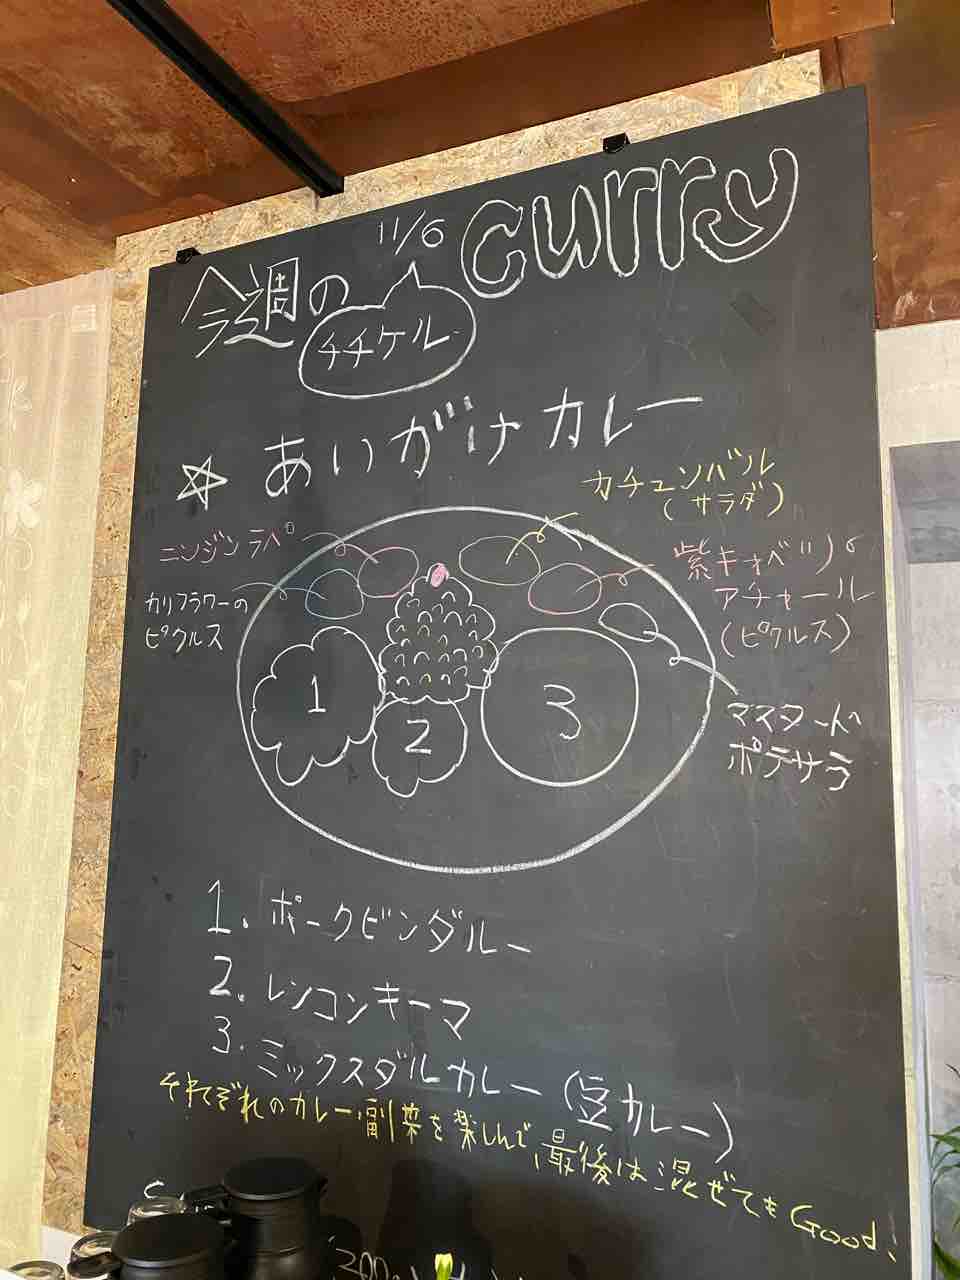 11/6
今週の curry
チチケル
☆ あいがけカレー
カチュンバル
(サラダ)
ニンジンラペ
紫キャベツ
アチャール
(ピクルス)
カリフラワーの
ピクルス
マスタード
ポテサラ
1
2
3
1. ポークビンダルー
2. レンコンキーマ
3. ミックスダルカレー(豆カレー)
それぞれのカレー、副菜を楽しんで、最後は混ぜてもGood!